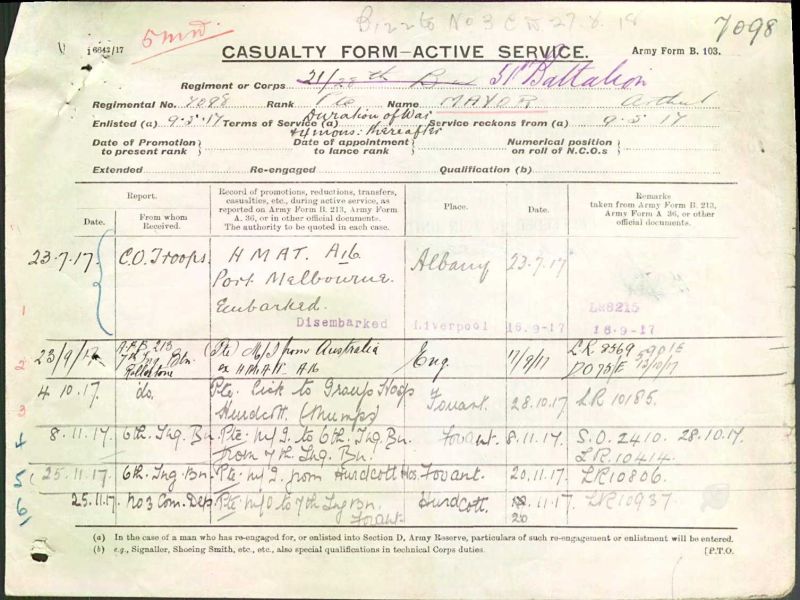 Bizzto No 3 C D. 27.8.18
7098
16642/17
5 M.D.
CASUALTY FORM—ACTIVE SERVICE.
Army Form B. 103.
Regiment or Corps 21/28th Bn 51st Battalion
Regimental No. 7098 Rank Pte Name MAYOR Arthur
Enlisted (a) 9-5-17 Terms of Service (a) Duration of War & 4 mons: thereafter Service reckons from (a) 9-5-17
Date of Promotion to present rank
Date of appointment to lance rank
Numerical position on roll of N.C.O.s
Extended Re-engaged Qualification (b)
Report.
Date.
From whom Received.
Record of promotions, reductions, transfers, casualties, etc., during active service, as reported on Army Form B. 213, Army Form A. 36, or in other official documents. The authority to be quoted in each case.
Place.
Date.
Remarks taken from Army Form B. 213, Army Form A 36, or other official documents.
23.7.17 C.O. Troops. HMAT. A16 Albany 23.7.17
Port Melbourne.
Embarked. LR8215
Disembarked Liverpool 16.9-17 16-9-17
1
2 23/9/17 A.F.B 213 7th Ing Btn. Rollestone (Pte) M/I from Australia ex HMAT A16 Eng. 17/9/17 LR 8369
DO 75/E 12/10/17
3 4.10.17. do. Pte. Sick to Group Hosp Hurdcott (Mumps) Fovant. 28.10.17. LR 10185.
4 8.11.17. 6th. Ing. Bn. Pte. m/I. to 6th. Ing. Bn. from 7th Ing. Bn. Fovant. 8.11.17. S.O. 2410. 28.10.17.
LR.10414.
5 25.11.17. 6th. Ing. Bn. Pte. m/I. from Hurdcott Hos. Fovant. 20.11.17. LR10806.
6 25.11.17. No 3 Com. Dep. Pte. m/O to 7th Ing Bn. Fovant. Hurdcott. 20.11.17. LR10937.
(a) In the case of a man who has re-engaged for, or enlisted into Section D, Army Reserve, particulars of such re-engagement or enlistment will be entered.
(b) e.g., Signaller, Shoeing Smith, etc., etc., also special qualifications in technical Corps duties.
[P.T.O.